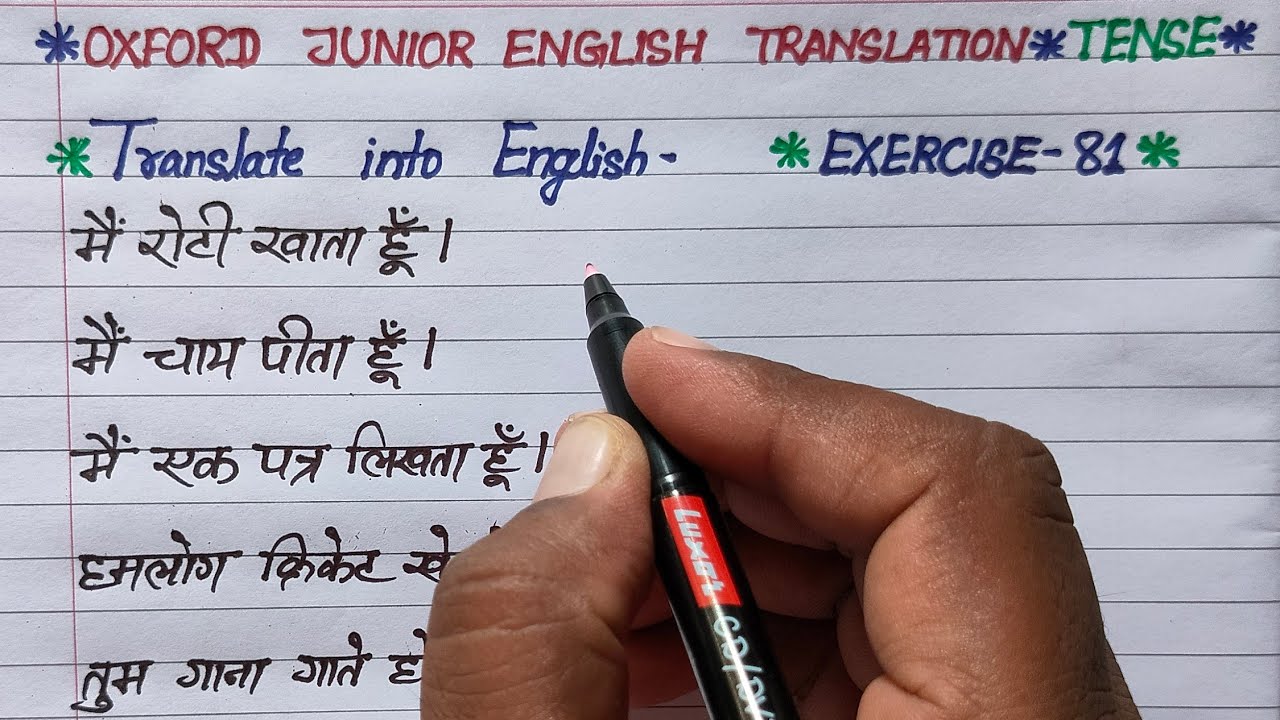 *OXFORD JUNIOR ENGLISH TRANSLATION*TENSE*
*Translate into English- *EXERCISE-81*
मैं रोटी खाता हूँ।
मैं चाय पीता हूँ।
मैं एक पत्र लिखता हूँ।
हमलोग क्रिकेट
तुम गाना गाते
Luxor